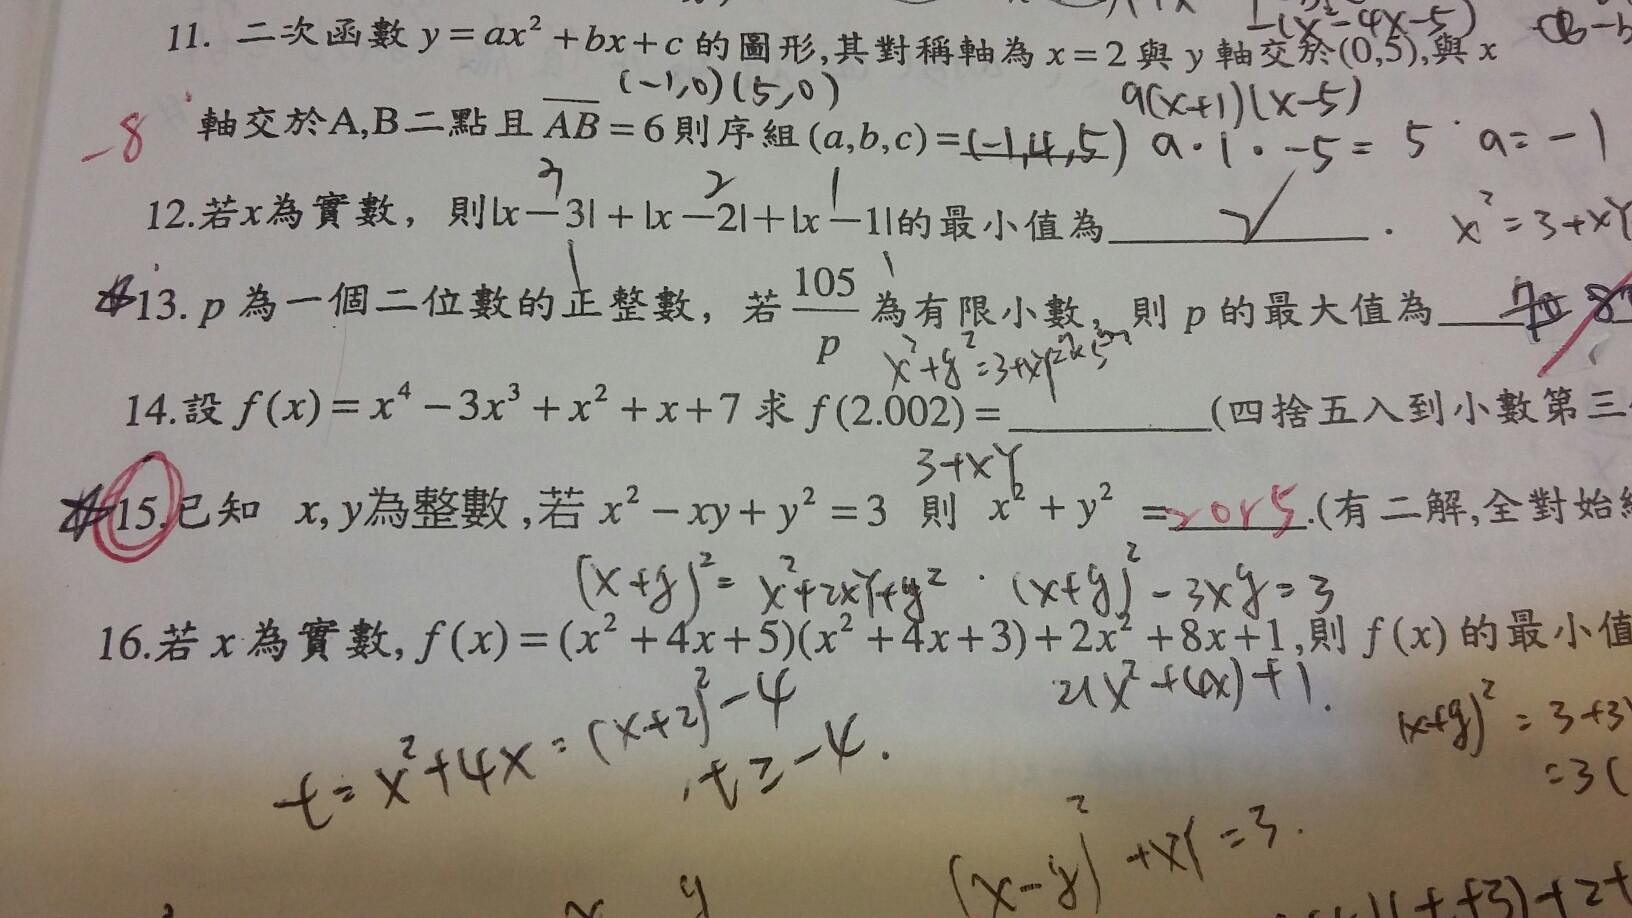 -(x²-4x-5)
11. 二次函數 y=ax²+bx+c 的圖形,其對稱軸為 x=2 與 y 軸交於(0,5),與 x
(-1,0)(5,0) a(x+1)(x-5)
-8 軸交於A,B二點且 AB=6則序組(a,b,c)=(-1,4,5) a·1·-5=5 a=-1
3 2 1
12.若x為實數, 則|x-3|+|x-2|+|x-1|的最小值為 2 . x²=3+xy
1 1
13. p 為一個二位數的正整數, 若 105/p 為有限小數, 則 p 的最大值為
x²+y²=3+xy
14.設 f(x)=x⁴-3x³+x²+x+7 求 f(2.002)= (四捨五入到小數第三
3+xy
15.已知 x,y為整數,若 x²-xy+y²=3 則 x²+y² =2or5.(有二解,全對始
(x+y)²=x²+2xy+y² (x+y)²-3xy=3
16.若 x 為實數, f(x)=(x²+4x+5)(x²+4x+3)+2x²+8x+1,則 f(x) 的最小值
2(x²+4x)+1.
t=x²+4x=(x+2)²-4
t≥-4.
(x+y)²=3+3
=3(
(x-y)²+xy=3.
x y